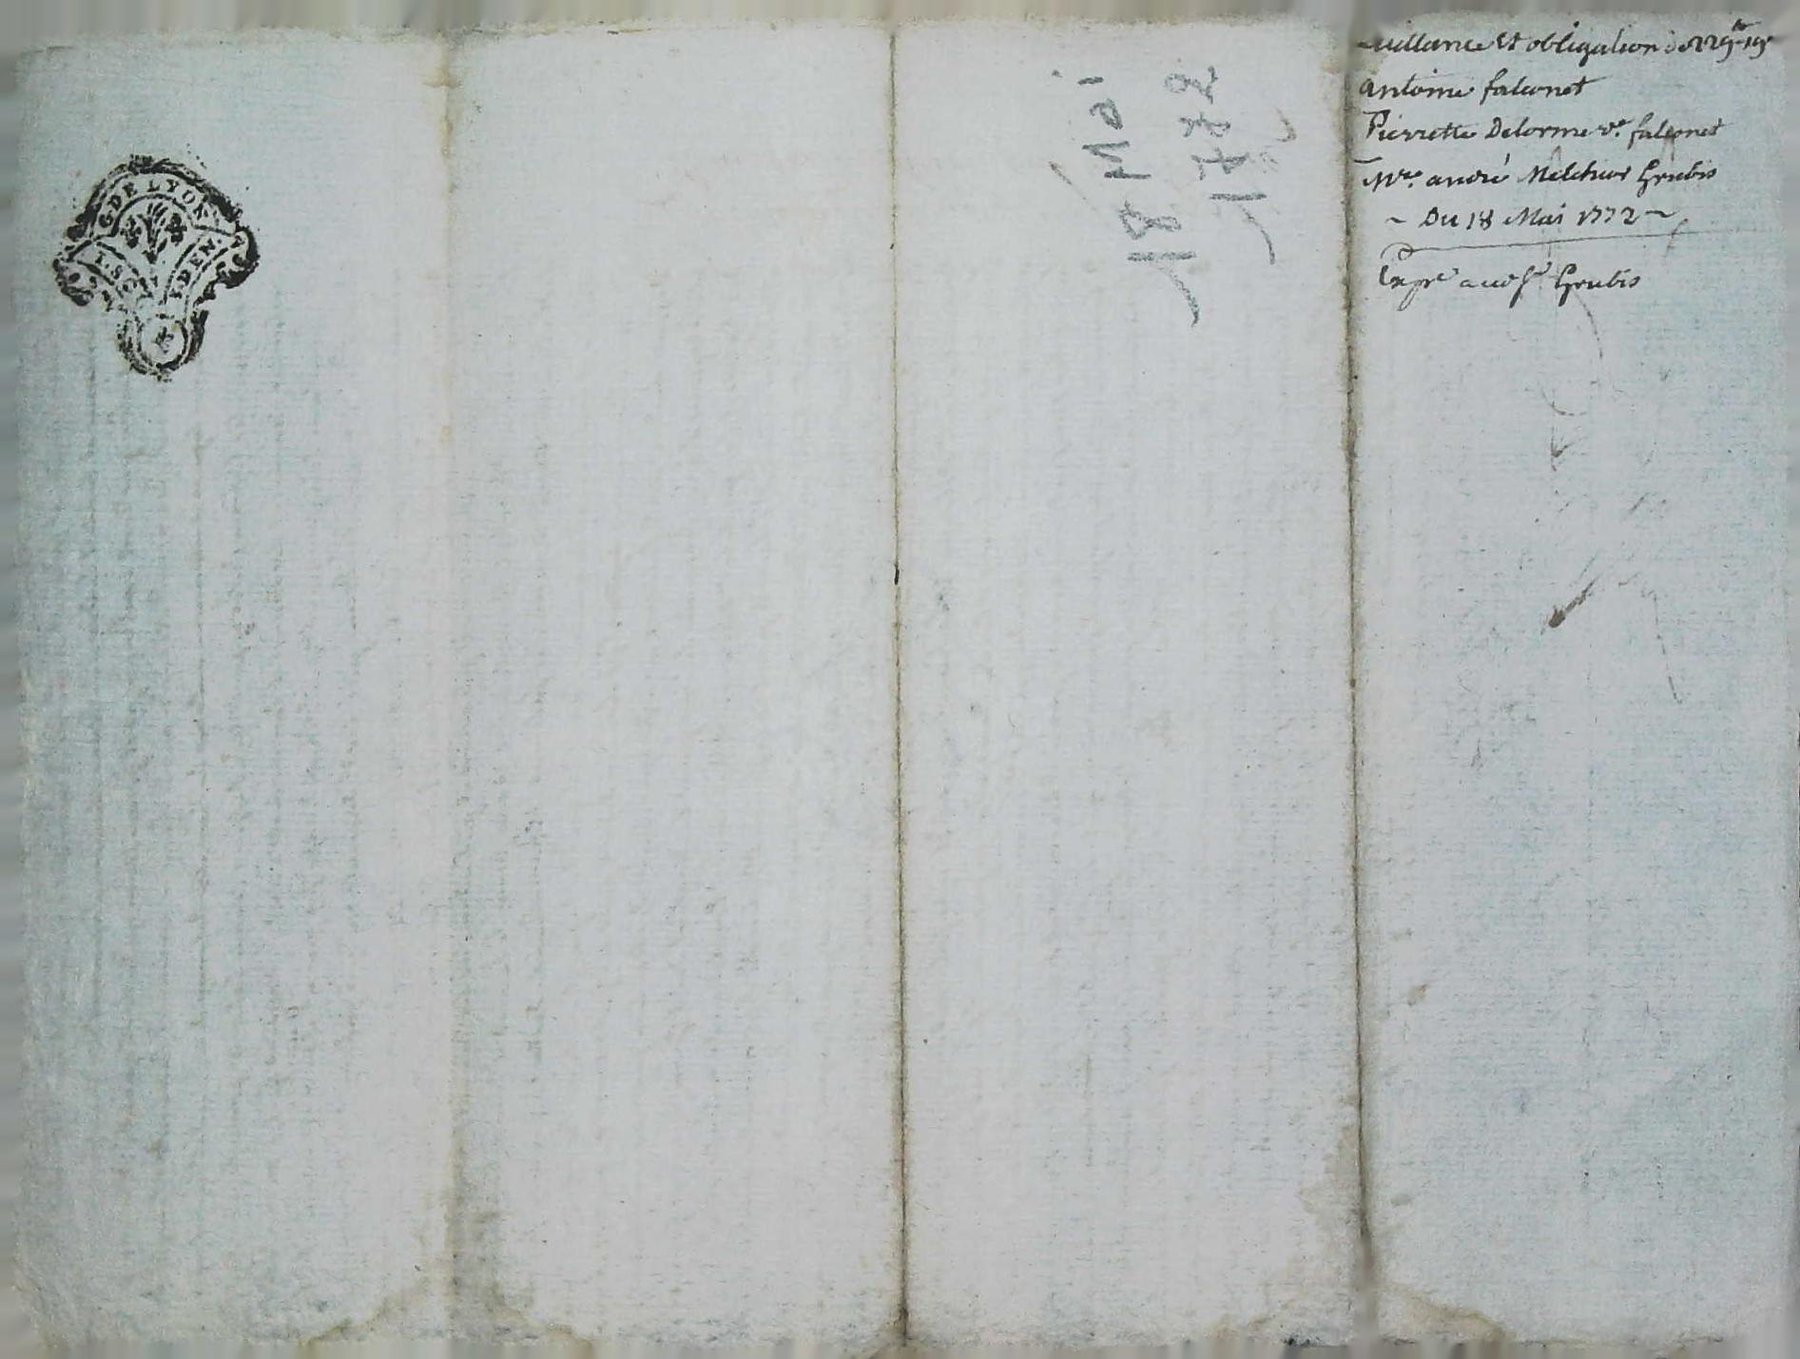 G DE LYON
1. S.
DEN.
18 Mai
1772
quittance et obligation de 229ᵗᵗ 19ˢ
antoine falconet
Pierrette Delorme vᵉ. falconet
Mʳᵉ. andré Melchior Grubis
~ Du 18 Mai 1772 ~
Expᵉ audˢʳ Grubis